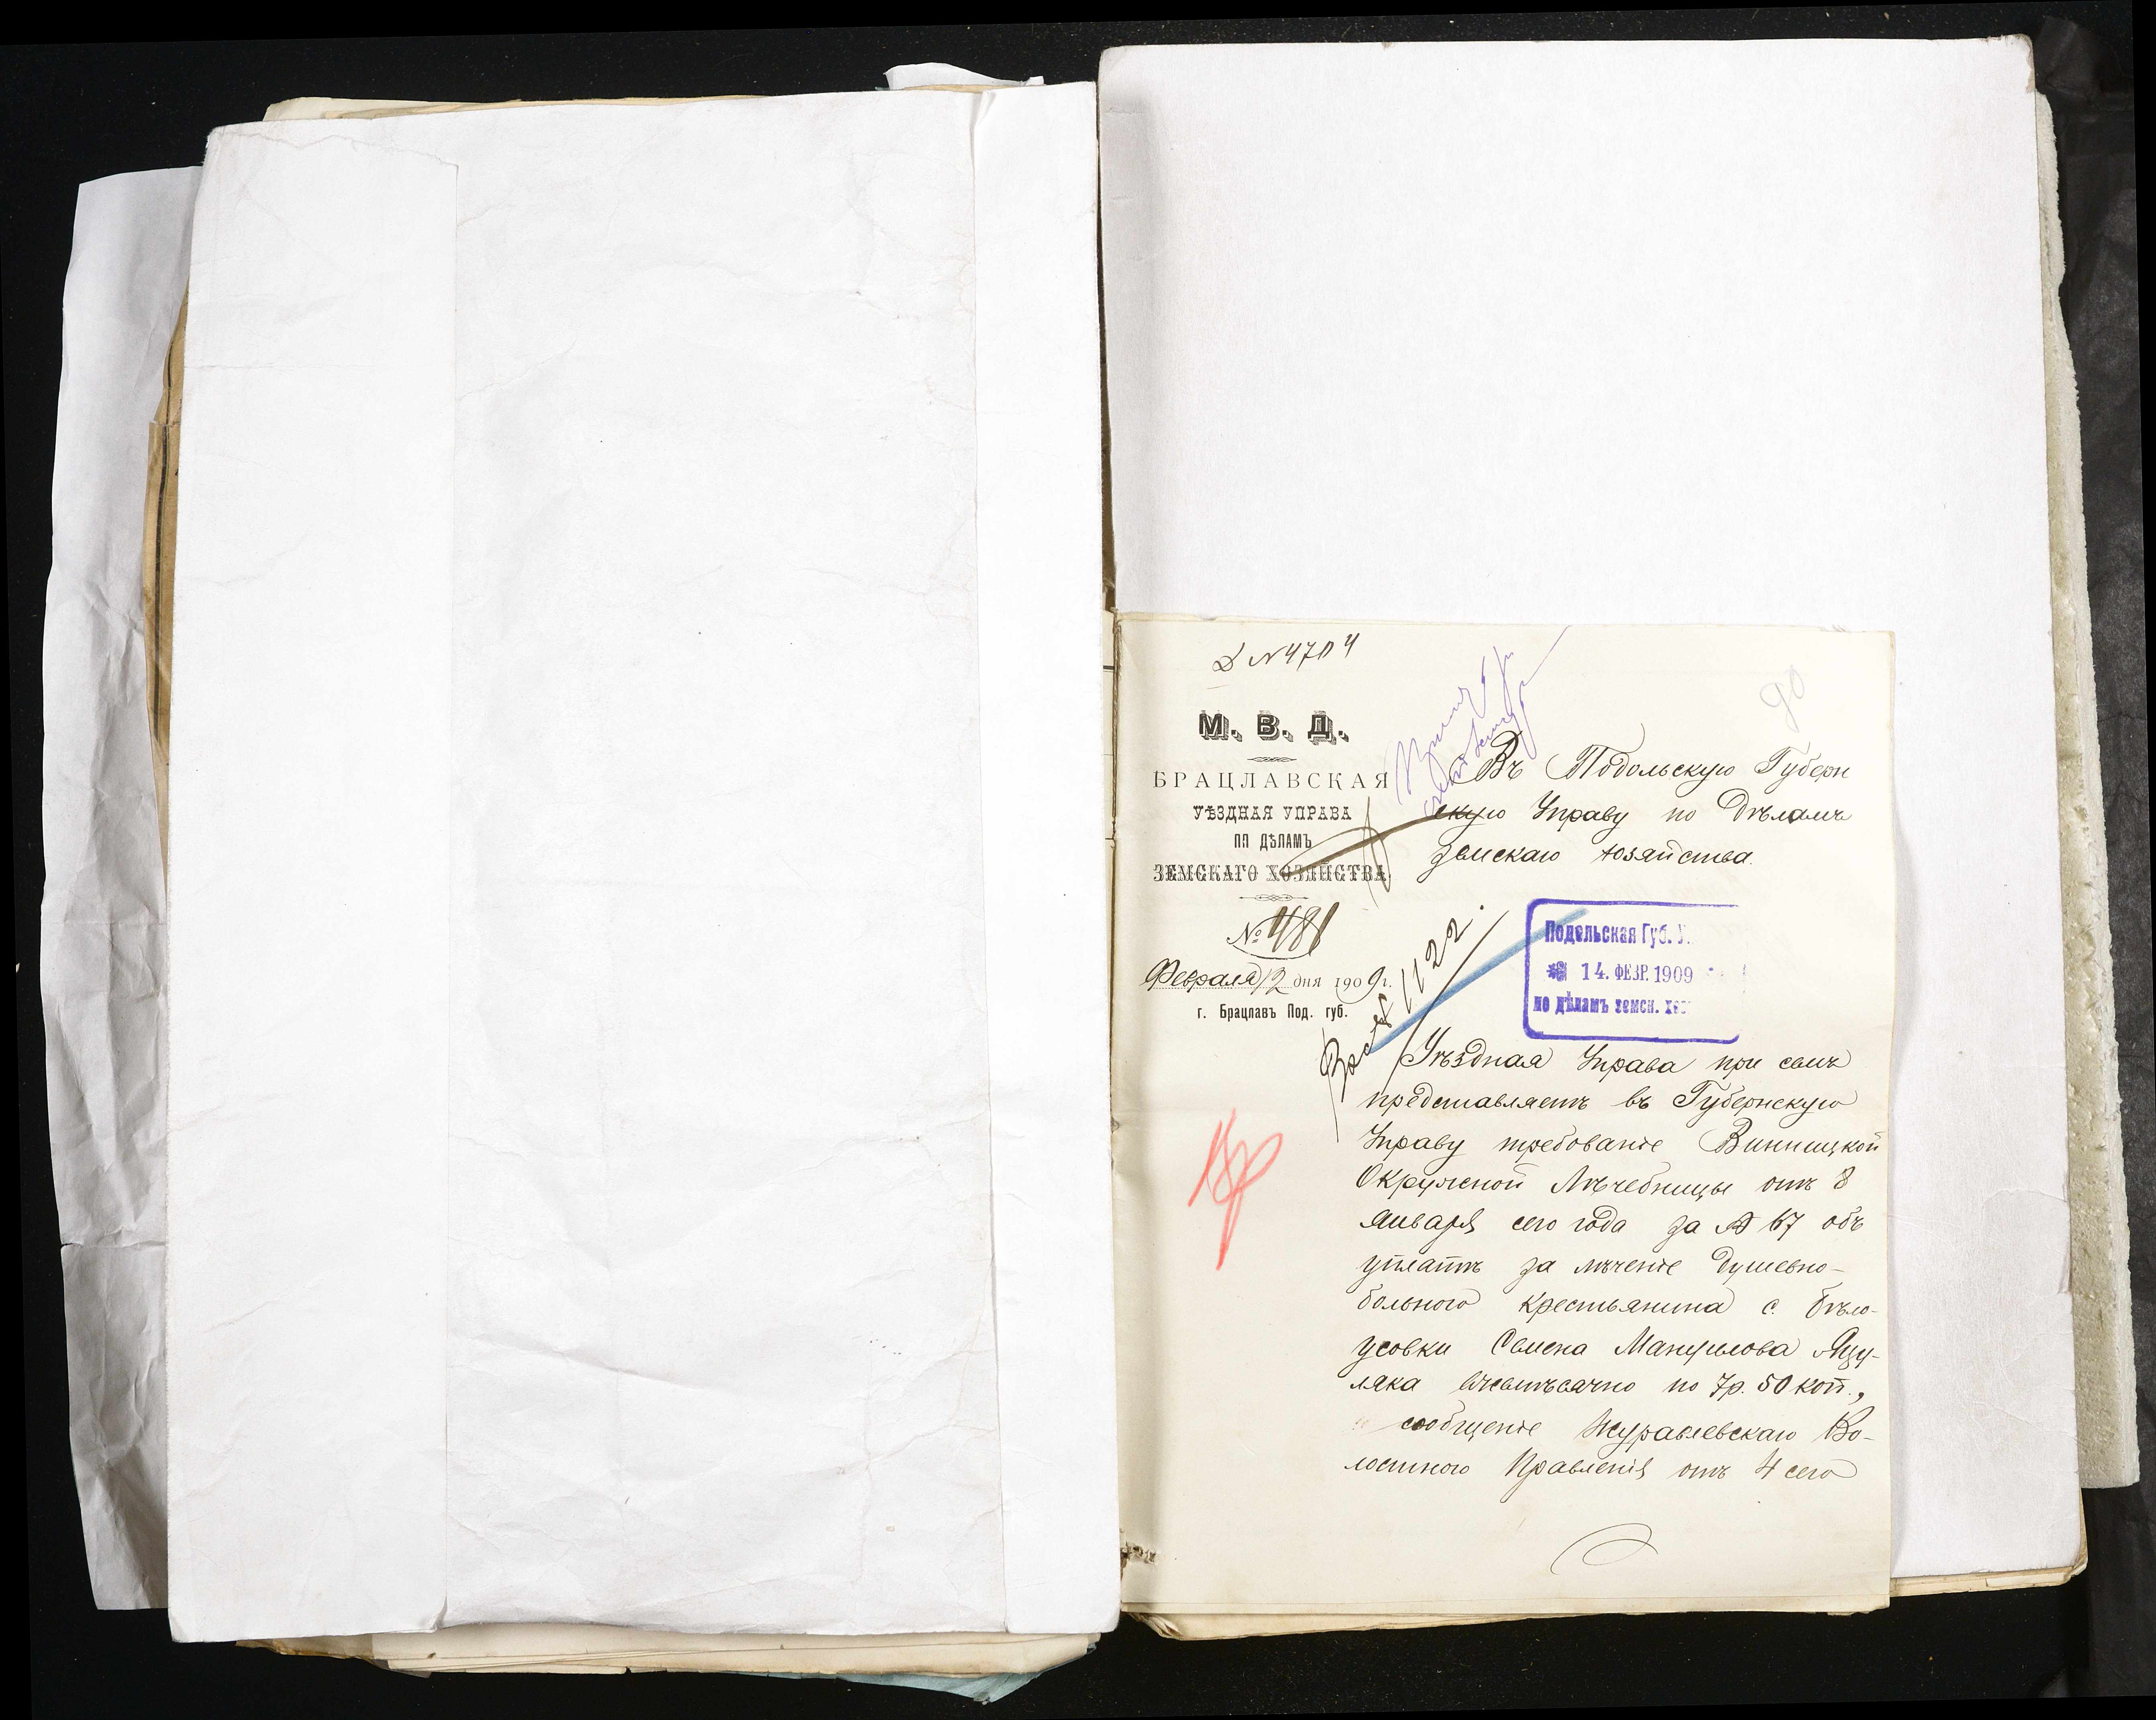 Д №4704
90
М. В. Д.
БРАЦЛАВСКАЯ
УѢЗДНАЯ УПРАВА
ПО ДѢЛАМЪ
ЗЕМСКАГО ХОЗЯЙСТВА
№ 481
Февраля 12 дня 1909 г.
г. Брацлавъ Под. губ.
Въ Подольскую Губерн
скую Управу по Дѣламъ
земскаго хозяйства.
Подольская Губ. У.
14. ФЕВР. 1909
по дѣламъ земск. хоз
1122
Уѣздная Управа при семъ
представляетъ въ Губернскую
Управу требованіе Винницкой
Окружной Лѣчебницы отъ 8
января сего года за № 67 объ
уплатѣ за лѣченіе душевно-
больного крестьянина с. Бѣло-
усовки Семена Мануилова Яцу-
ляка ежемѣсячно по 7р. 50 коп.,
сообщеніе Журавлевскаго Во-
лостного Правленія отъ 4 сего